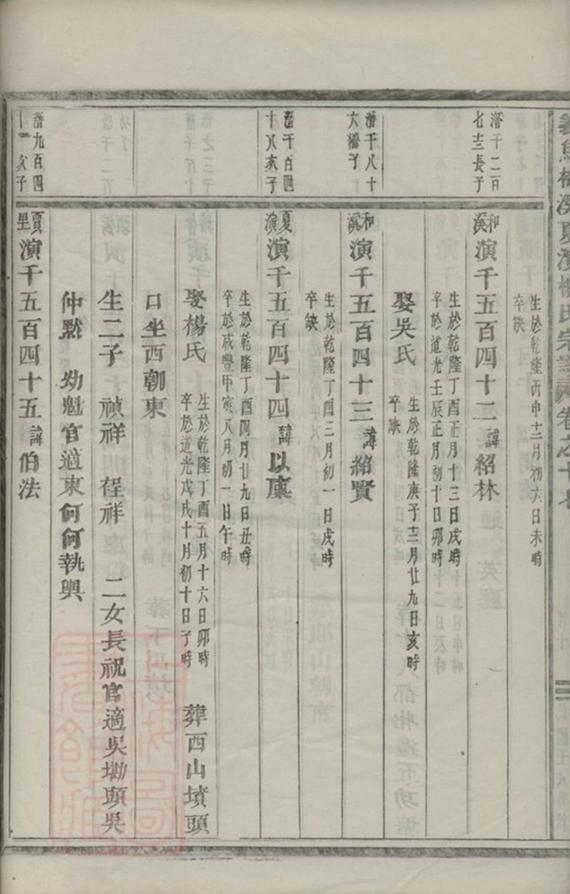 生於乾隆丙申十二月初六日未時
卒缺
潛千二百
七十三長子
和溪
演千五百四十二
諱紹林
生於乾隆丁酉正月十三日戌時
卒於道光壬辰正月初十日卯時
娶吳氏
生於乾隆庚子三月廿九日亥時
卒缺
潛千八十
六橋子
和溪
演千五百四十三
諱紹賢
生於乾隆丁酉三月初一日戌時
卒缺
潛千百四
十八亥子
夏演
演千五百四十四
諱以廩
生於乾隆丁酉四月廿九日丑時
卒於咸豐甲寅八月初一日午時
娶楊氏
生於乾隆丁酉五月十六日卯時
卒於道光戊戌十月初十日子時
葬西山墳頭
口坐西朝東
生二子 禎祥 程祥 二女長祝官適吳塢頭吳
仲默 幼魁官適東何何執輿
潛九百四
亥子
夏里
演千五百四十五
諱伯法